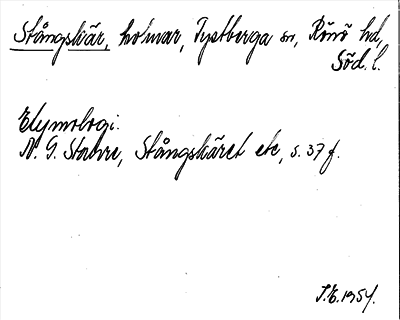 Stångskär, holmar, Tystberga sn, Rönö hd,
Söd. l.
Etymologi.
N. G. Stahre, Stångskäret etc, s. 37 f.
S.E. 1954.